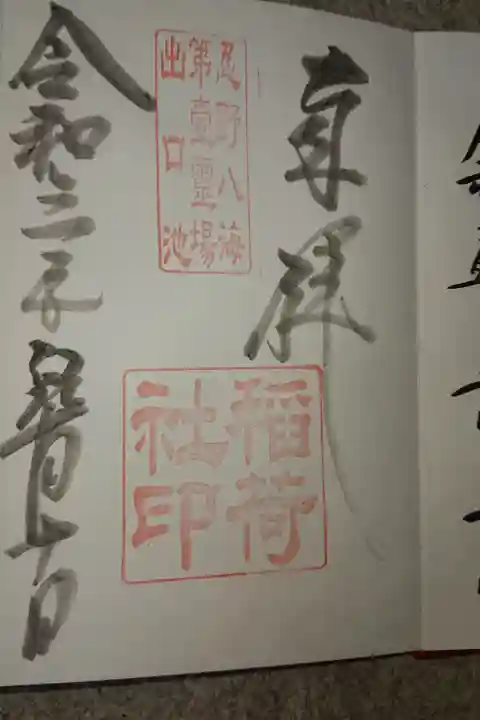 奉拝
忍野八海
第壹靈場
出口池
稲荷
社印
令和二年 月十日